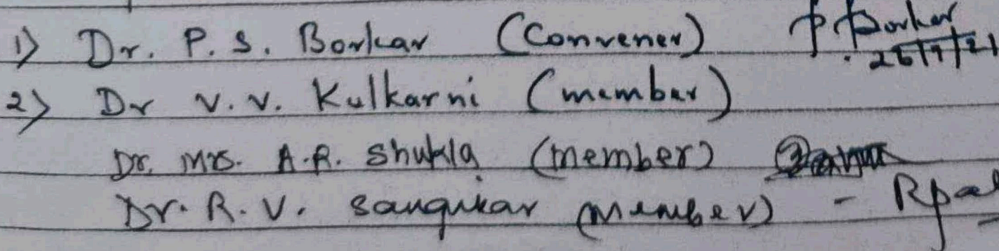 1) Dr. P. S. Borkar (Convener) P. Borkar
2) Dr V. V. Kulkarni (member)
Dr. Mrs. A. R. Shukla (member)
Dr. R. V. Sangvikar (Member) -